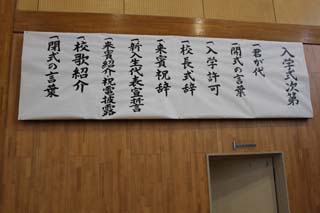 入学式次第
一君が代
一開式の言葉
一入学許可
一校長式辞
一来賓祝辞
一新入生代表宣誓
一来賓紹介祝電披露
一校歌紹介
一閉式の言葉